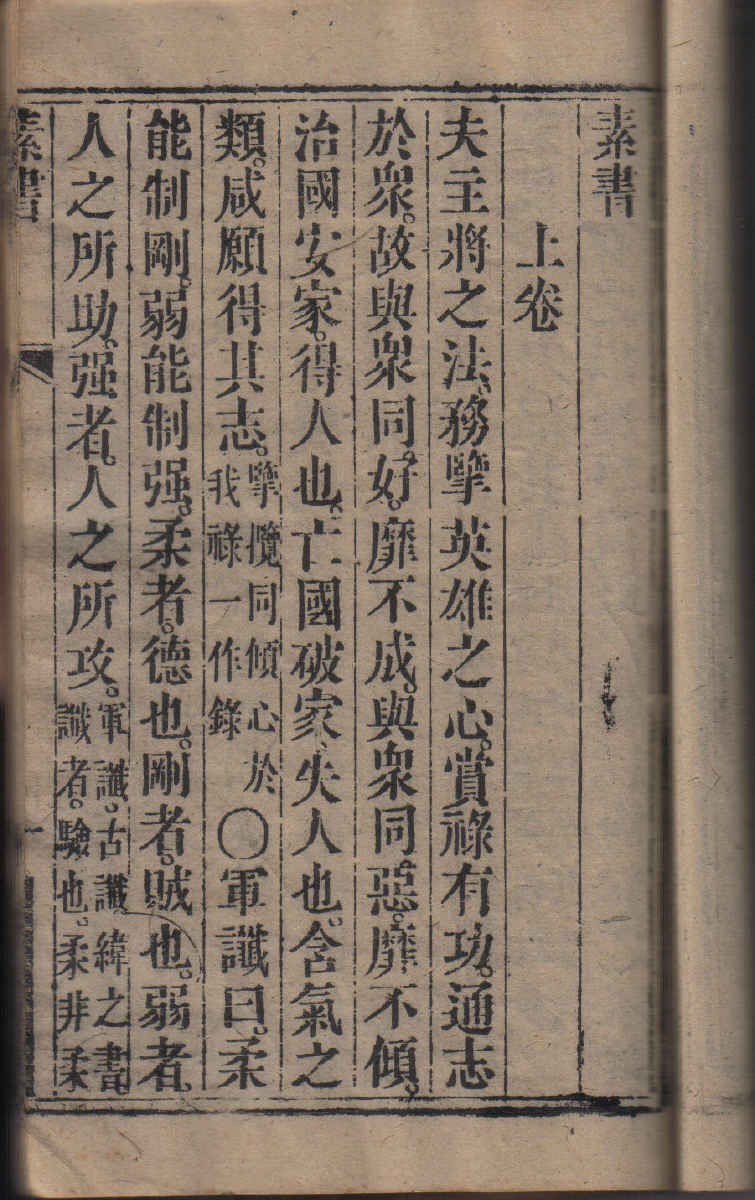 素書
上卷
夫主將之法、務擥英雄之心。賞祿有功。通志
於衆。故與衆同。好。靡不成。與衆同。惡。靡不傾。
治國安家。得人也。亡國破家、失人也。含氣之
類。咸願得其志。擥攬同傾心於我祿一作錄〇軍讖曰。柔
能制剛。弱能制强。柔者。德也。剛者。賊也。弱者。
人之所助。强者。人之所攻。軍讖。古讖緯之書。讖者。驗也。柔非柔
素書
一